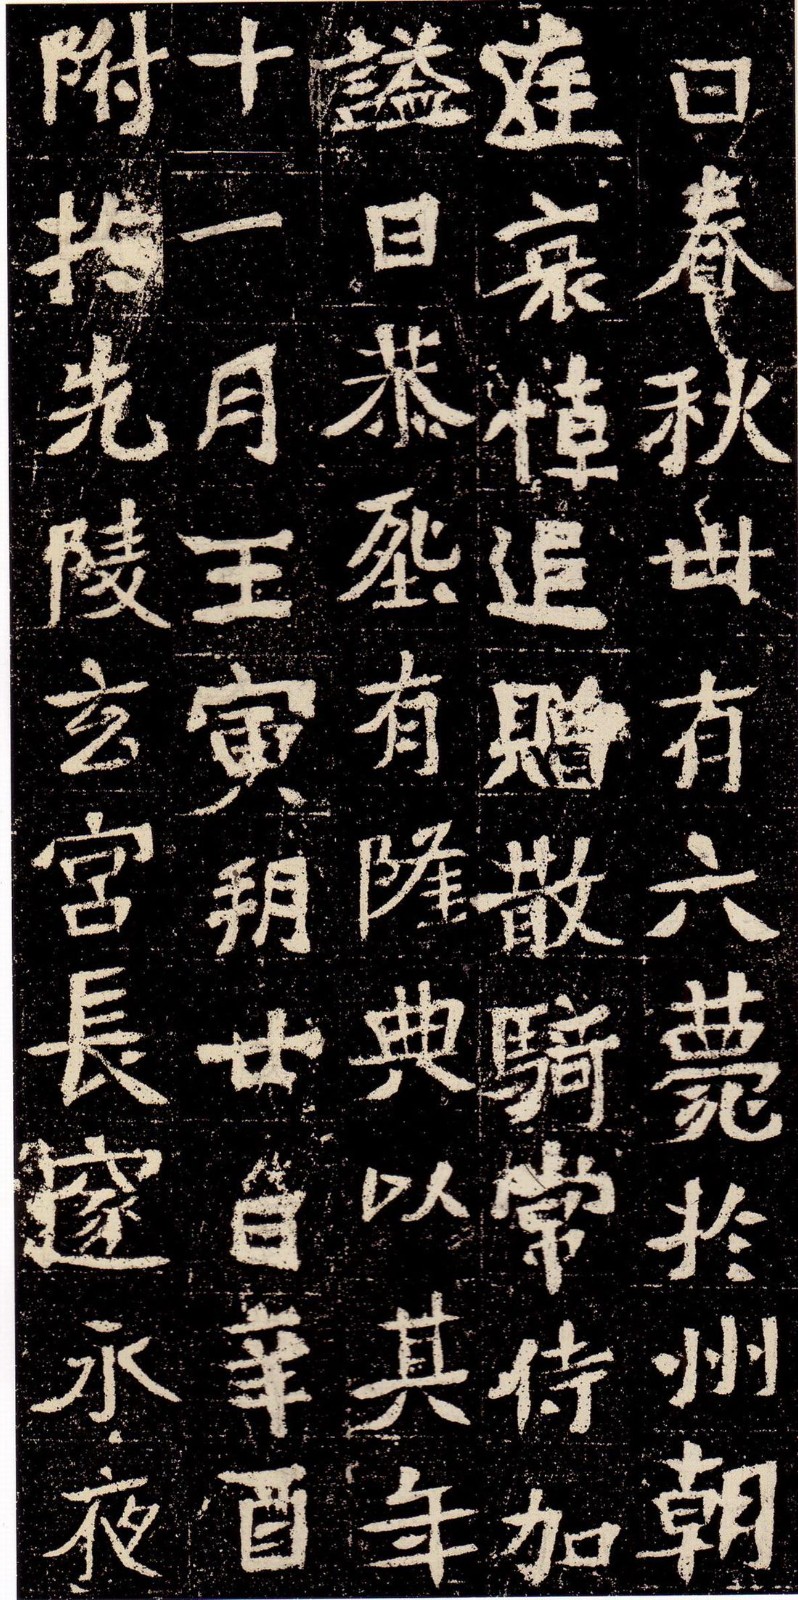 日春秋卌有六薨於州朝
廷哀悼追贈散騎常侍加
謚曰恭葬有隆典以其年
十一月壬寅朔廿日辛酉
附於先陵玄宮長邃永夜